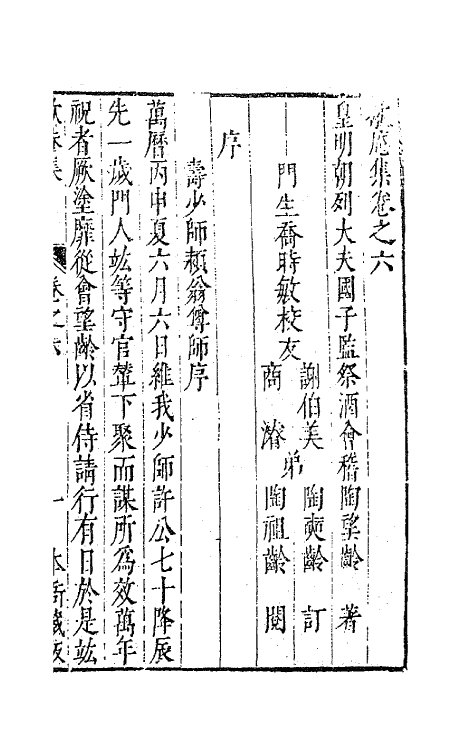 歇庵集卷之六
皇明朝列大夫國子監祭酒會稽陶望齡 著
門生喬時敏校友 謝伯美 弟 陶奭齡 訂
商濬 陶祖齡 閱
序
壽少師頴翁尊師序
萬曆丙申夏六月六日維我少師許公七十降辰
先一歲門人竑等守官輦下聚而謀所爲效萬年
祝者厥塗靡從會望齡以省侍請行有日於是竑
歇庵集 卷之六 一 本衙藏板